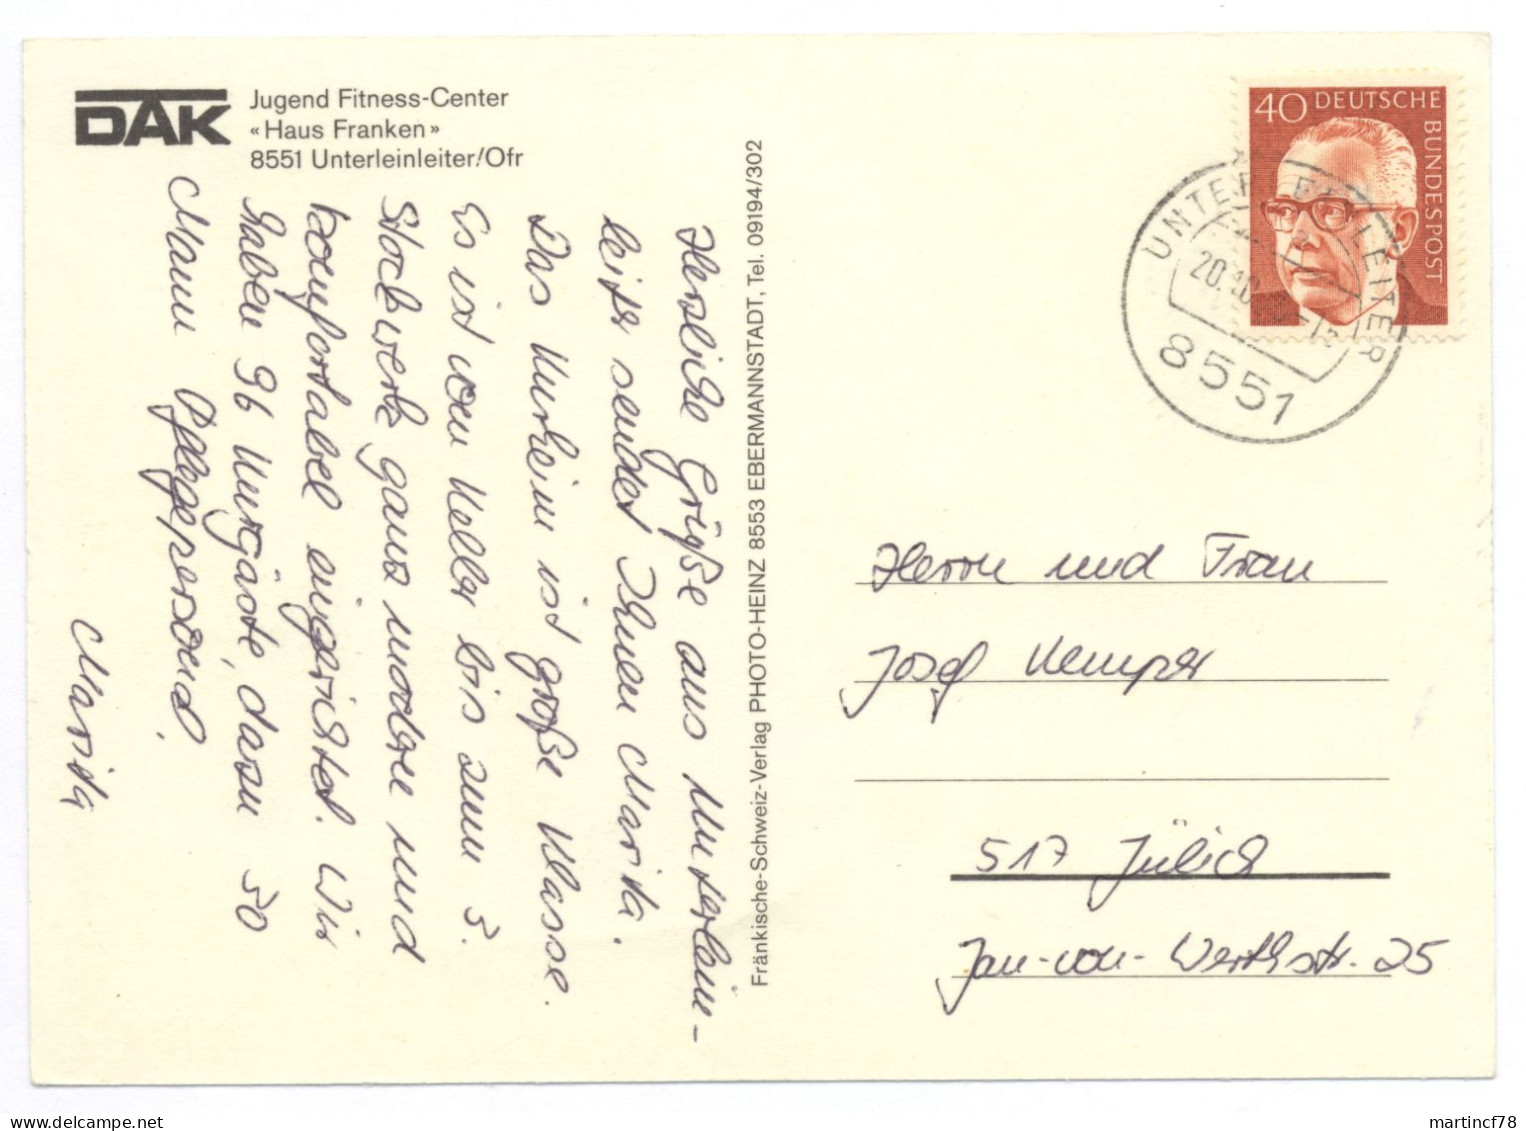 DAK
Jugend Fitness-Center
«Haus Franken»
8551 Unterleinleiter/Ofr
Herzliche Grüße aus Unterlein-
leiter sendet Ihnen Marita.
Das Kurheim ist große Klasse.
Es ist von Keller bis zum 3.
Stockwerk ganz modern und
komfortabel eingerichtet. Wir
haben 96 Kurgäste, davon 30
Mann Pflegepersonal.
Marita
Fränkische-Schweiz-Verlag PHOTO-HEINZ 8553 EBERMANNSTADT, Tel. 09194/302
40 DEUTSCHE
BUNDESPOST
UNTERLEINLEITER
20.10.
8551
Herrn und Frau
Josef Kemper
517 Jülich
Jan-von-Werthstr. 25
martincf78